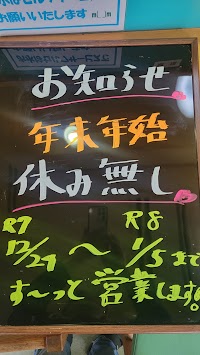 お願いします m(_ _)m
お知らせ
年末年始
休み無し
R7 R8
12/29 〜 1/5まで
す〜っと営業します。